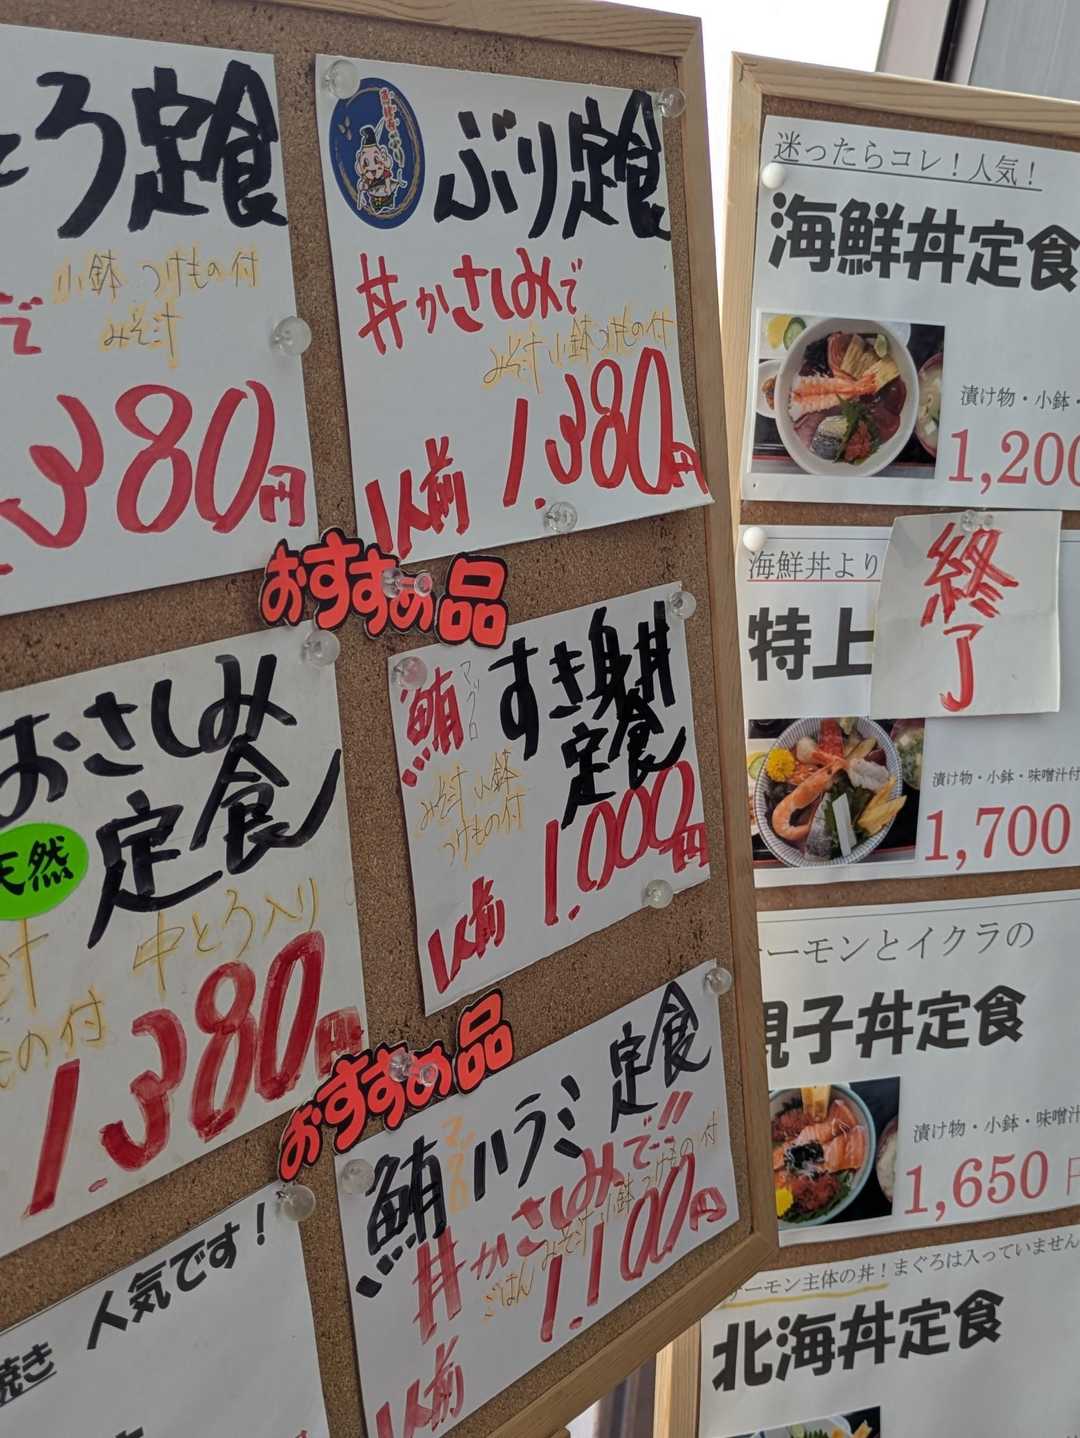 とろ定食
で
小鉢 つけもの付
みそ汁
380円
ぶり定食
丼かさしみで
みそ汁 小鉢 つけもの付
1人前 1.380円
おすすめ品
おさしみ
定食
天然
中とろ入り
1.380円
鮪 マグロ
すき身丼
定食
みそ汁 小鉢
つけもの付
1人前 1.000円
おすすめ品
鮪 マグロ ハラミ 定食
丼かさしみで!!
ごはん みそ汁 小鉢 つけもの付
1人前 1.100円
人気です！
焼き
迷ったらコレ！人気！
海鮮丼定食
漬け物・小鉢・
1,200
海鮮丼より
特上
終了
漬け物・小鉢・味噌汁付
1,700
ーモンとイクラの
親子丼定食
漬け物・小鉢・味噌汁
1,650円
ーモン主体の丼！まぐろは入っていません
北海丼定食